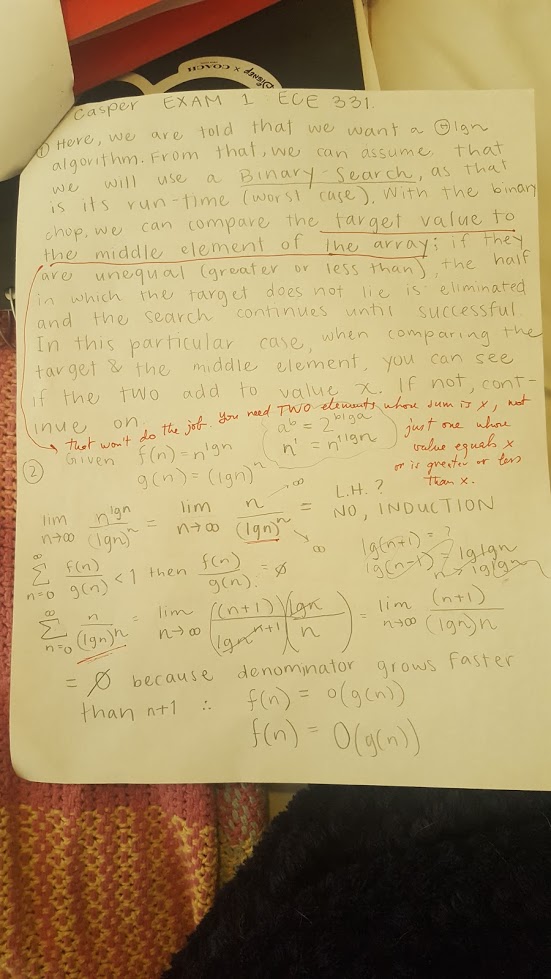 DISNEY X COACH
Casper EXAM 1 ECE 331.
① Here, we are told that we want a Θlgn
algorithm. From that, we can assume that
we will use a Binary Search, as that
is its run-time (worst case). With the binary
chop, we can compare the target value to
the middle element of the array; if they
are unequal (greater or less than), the half
in which the target does not lie is eliminated
and the search continues until successful.
In this particular case, when comparing the
target & the middle element, you can see
if the two add to value x. If not, cont-
inue on.
that won't do the job. You need TWO elements whose sum is x, not
just one whose
value equals x
or is greater or less
than x.
② Given f(n) = n^lgn
g(n) = (lgn)^n
a^b = 2^blga
n^1 = n^1lgn
lim n→∞ n^lgn/(lgn)^n = lim n→∞ n/(lgn)^n = L.H. ?
→∞
→∞
NO, INDUCTION
∞ Σ n=0 f(n)/g(n) < 1 then f(n)/g(n) = ∅
lg(n+1) = ?
lg(n-1) = lglgn
∞ Σ n=0 n/(lgn)^n = lim n→∞ ((n+1)/lgn^n+1)(lgn/n) = lim n→∞ (n+1)/(lgn)n
= ∅ because denominator grows faster
than n+1 ∴ f(n) = o(g(n))
f(n) = O(g(n))